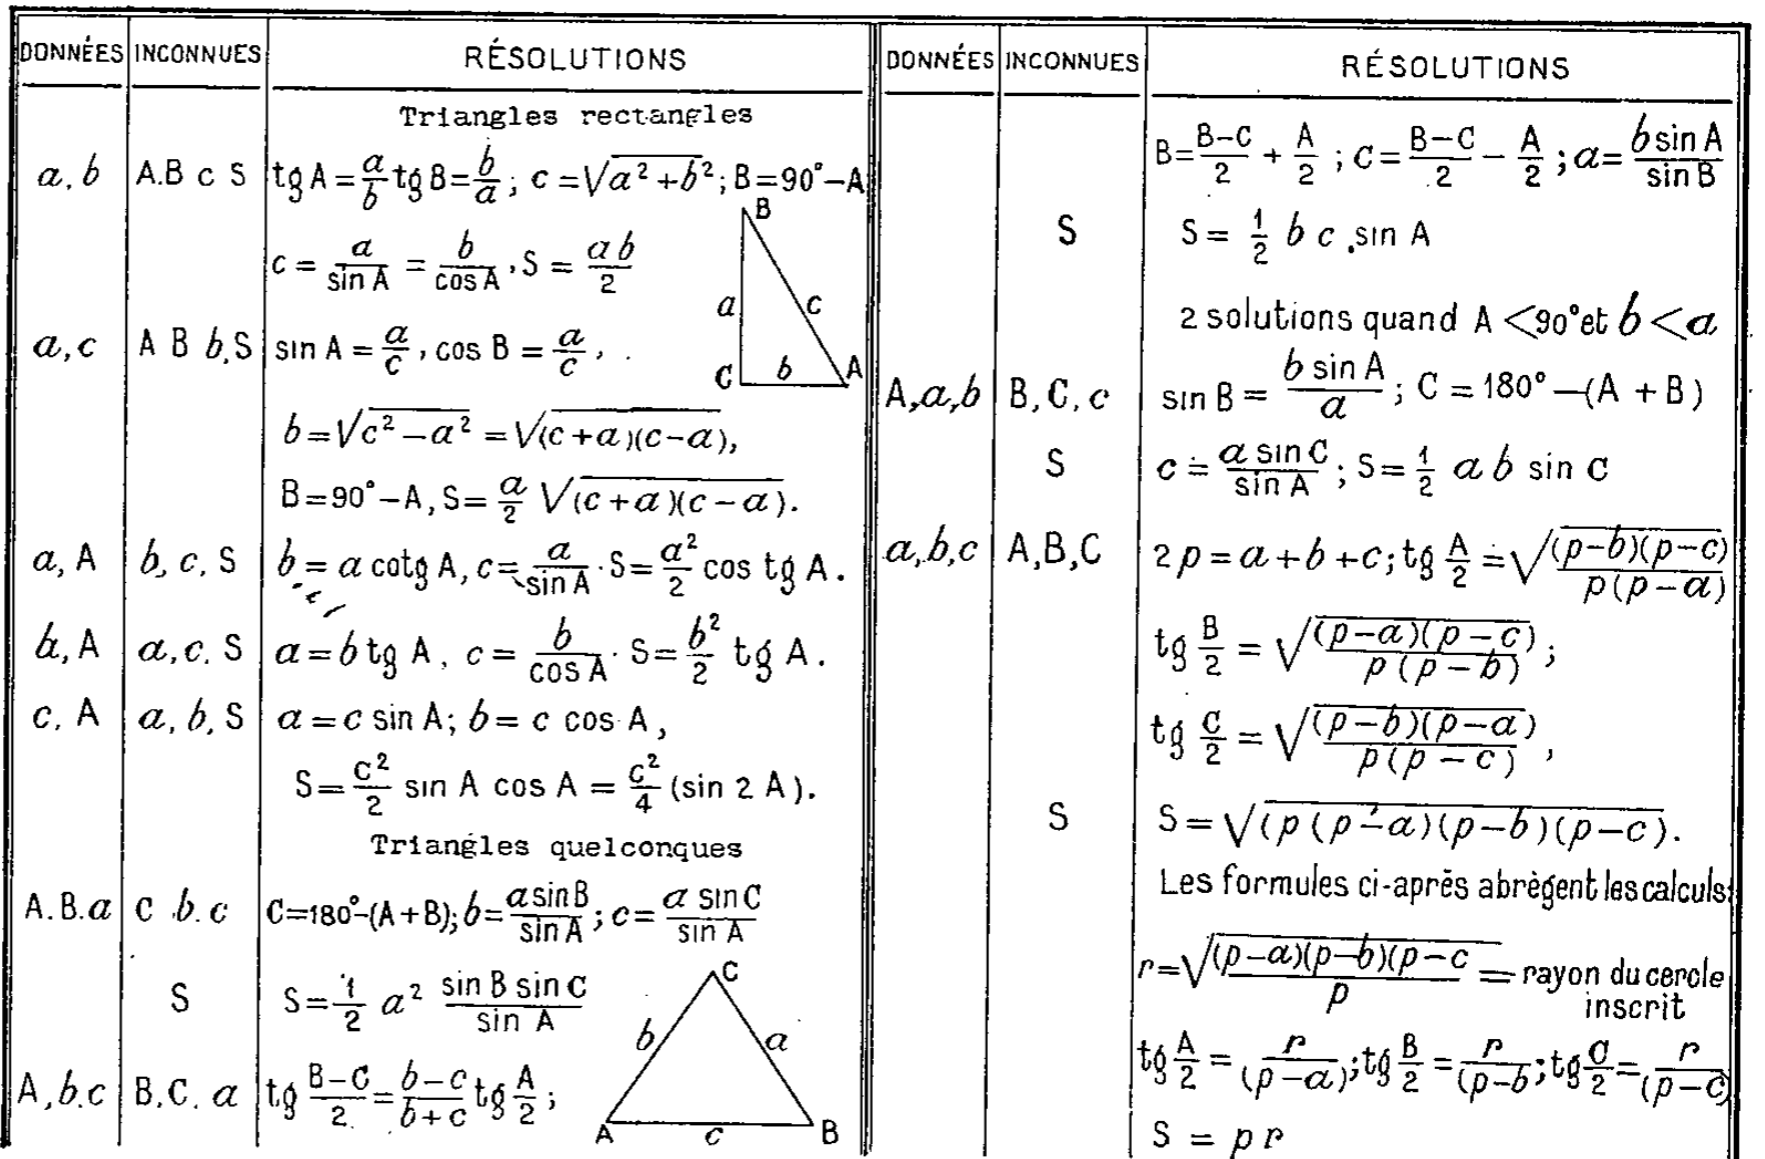 DONNÉES INCONNUES RÉSOLUTIONS
Triangles rectangles
a, b A.B c S tg A = a/b tg B = b/a ; c = √(a² + b²) ; B = 90° – A
c = a/sin A = b/cos A , S = a b/2
a, c A B b, S sin A = a/c , cos B = a/c , .
b = √(c² – a²) = √((c + a)(c – a)),
B = 90° – A, S = a/2 √((c + a)(c – a)).
a, A b, c, S b = a cotg A, c = a/sin A . S = a²/2 cos tg A.
b, A a, c, S a = b tg A, c = b/cos A . S = b²/2 tg A.
c, A a, b, S a = c sin A; b = c cos A,
S = c²/2 sin A cos A = c²/4 (sin 2 A).
B
a c
C b A
Triangles quelconques
A. B. a C b. c C = 180° – (A + B); b = a sin B/sin A ; c = a sin C/sin A
S S = 1/2 a² sin B sin C/sin A
A, b. c B. C. a tg B–C/2 = b–c/b+c tg A/2 ;
C
b a
A c B
DONNÉES INCONNUES RÉSOLUTIONS
B = B–C/2 + A/2 ; C = B–C/2 – A/2 ; a = b sin A/sin B
S S = 1/2 b c . sin A
2 solutions quand A < 90° et b < a
A, a, b B, C, c sin B = b sin A/a ; C = 180° – (A + B)
S c = a sin C/sin A ; S = 1/2 a b sin C
a, b, c A, B, C 2 p = a + b + c; tg A/2 = √((p–b)(p–c)/p(p–a))
tg B/2 = √((p–a)(p–c)/p(p–b)) ;
tg C/2 = √((p–b)(p–a)/p(p–c)) ,
S S = √((p (p – a)(p – b)(p – c).
Les formules ci-après abrègent les calculs:
r = √((p–a)(p–b)(p–c/p) = rayon du cercle
inscrit
tg A/2 = r/(p–a) ; tg B/2 = r/(p–b ; tg C/2 = r/(p–c)
S = p r